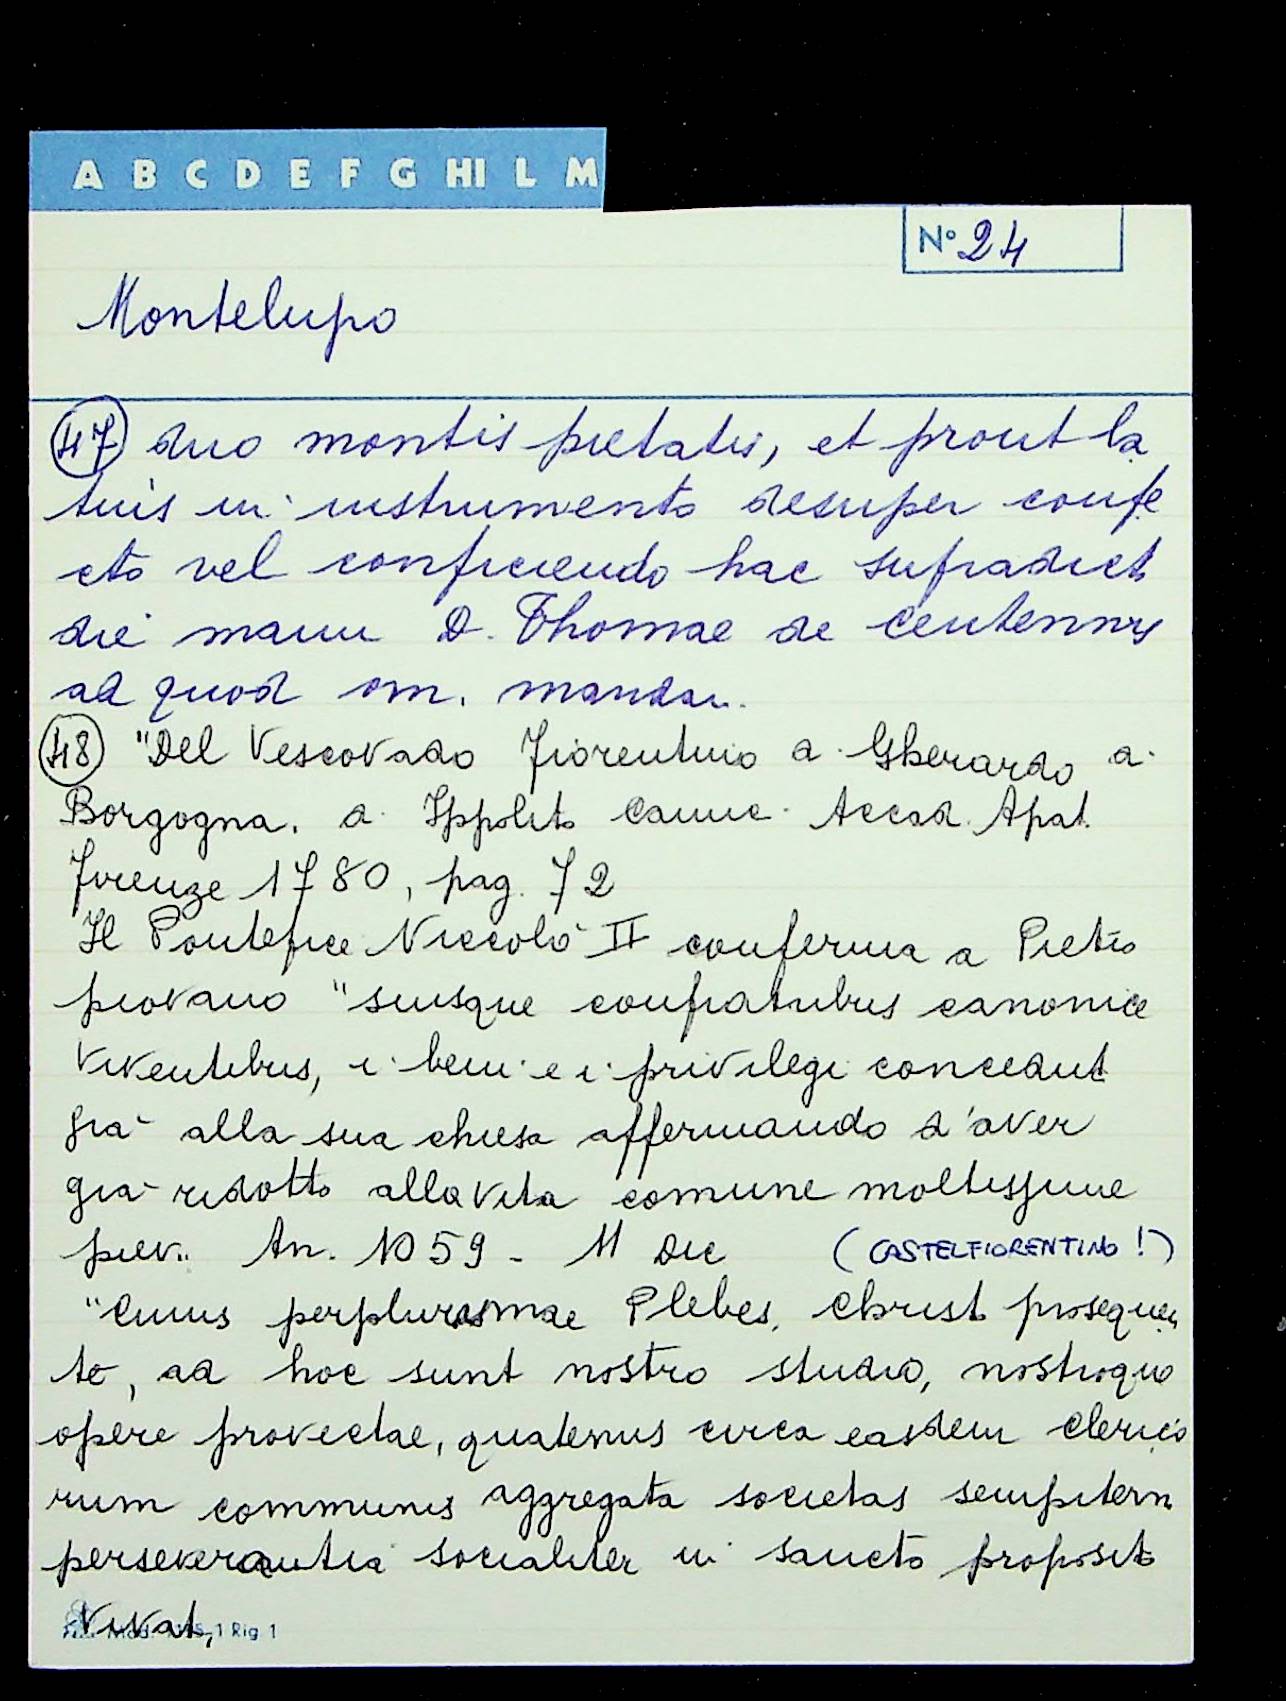 A B C D E F G HI L M
N° 24
Montelupo
47 duo montis pietatis, et prout la
tius in instrumento desuper confe
cto vel conficiendo hac supradict
die manu D. Thomae de Centennis
ad quod om. mandan.
48 "Del Vescovado Fiorentino d. Gherardo d.
Borgogna. d. Ippolito Camic. Accad. Apat.
Firenze 1780, pag. 72
Il Pontefice Niccolò II conferma a Pietro
piovano "suisque confratribus canonice
viventibus, i beni e i privilegi conceduti
già alla sua chiesa affermando d'aver
già ridotto alla vita comune moltissime
pievi. An. 1059 - 11 Dic (CASTELFIORENTINO!)
"Cuius perplurismae Plebes, Christ prosequen
te, ad hoc sunt nostro studio, nostroque
opere provectae, quatenus circa easdem clerico
rum communis aggregata societas sempitern
perseverantia socialiter in sancto proposito
vivat,
1 Rig 1